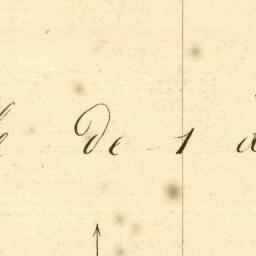 de 1